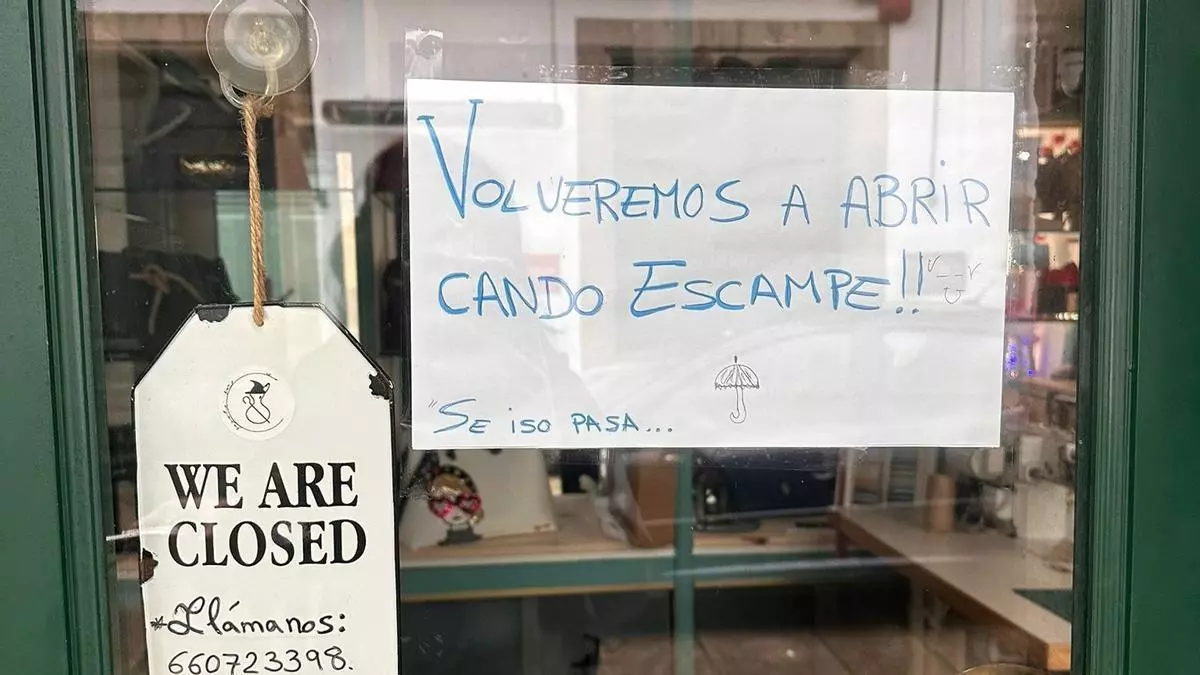 VOLVEREMOS A ABRIR
CANDO ESCAMPE!!
"SE ISO PASA...
WE ARE
CLOSED
*Llámanos:
660723398.